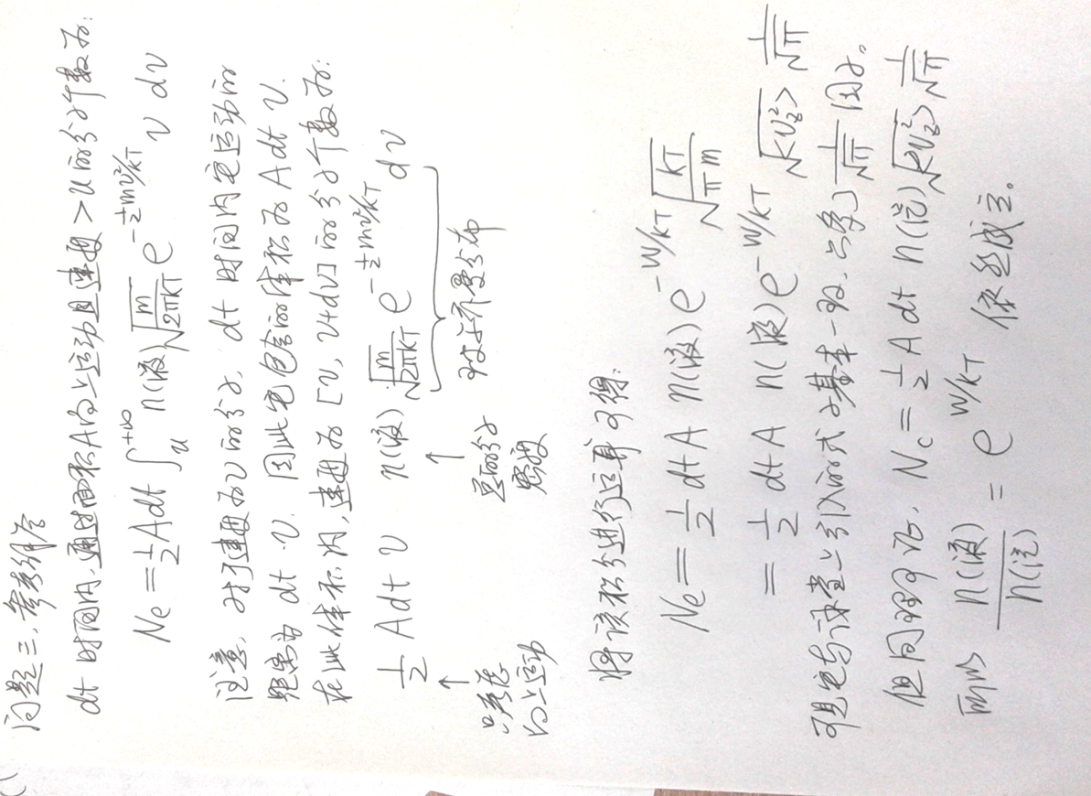 问题三,参考解答
dt时间内,通过面积A向上运动且速度>u的分子个数为:
Ne = 1/2 Adt ∫_u^{+∞} n(液) √(m/2πkT) e^{-1/2 mv²/kT} v dv
注意,对于速度为v的分子,dt时间内它运动的
距离为 dt·v. 因此它包含的体积为 Adt v.
在此体积内,速度为[v, v+dv]的分子个数为:
1/2 Adt v n(液) √(m/2πkT) e^{-1/2 mv²/kT} dv
↑ ↑
只考虑 总的分子 玻尔兹曼分布
向上运动 密度
将该积分进行运算可得:
Ne = 1/2 dt A n(液) e^{-W/kT} √(kT/πm)
= 1/2 dt A n(液) e^{-W/kT} √<v_z²> 1/√π
可见它与课堂上引入的式子基本一致,只差了 1/√π 因子。
但同理可证, Nc = 1/2 A dt n(汽) √<v_z²> 1/√π
所以 n(液)/n(汽) = e^{W/kT} 依然成立。